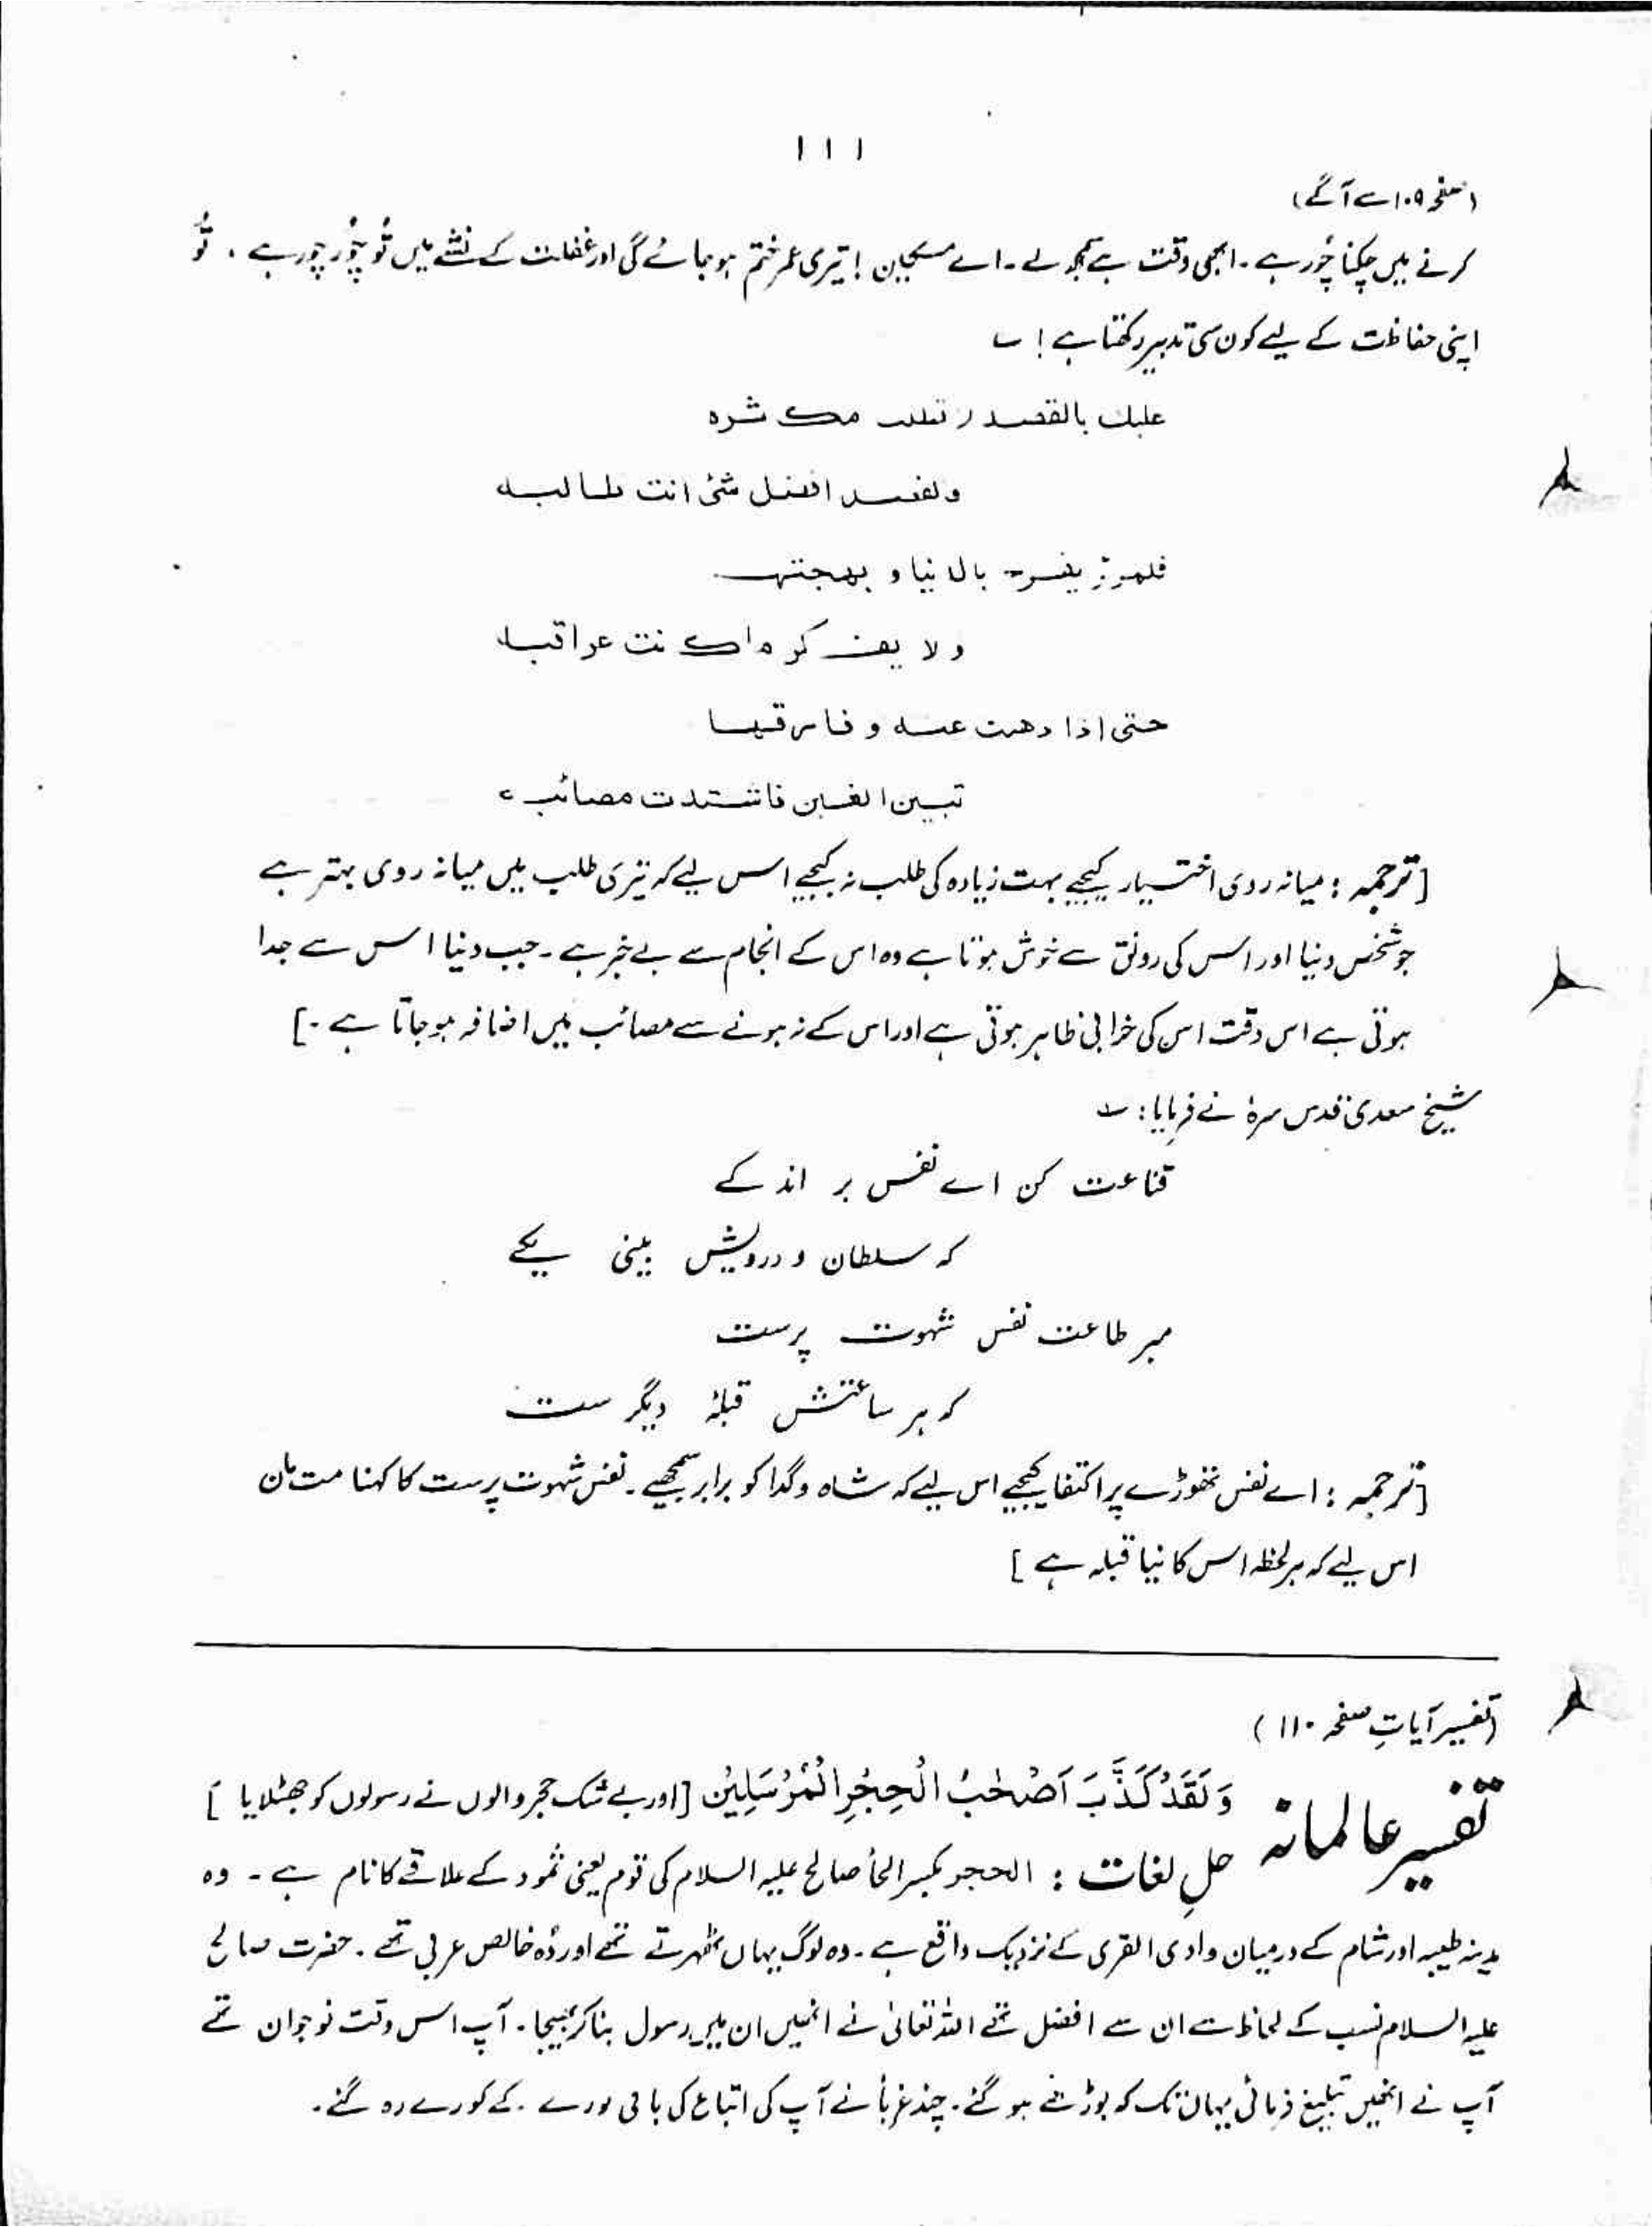 ۱۱۱
(صفحہ ۱۰۹ سے آگے)
کرنے میں چکنا چُور ہے۔ ابھی وقت ہے سمجھ لے۔ اے مسکین! تیری عمر ختم ہو جائے گی اور غفلت کے نشے میں تُو چُور چور ہے، تُو
اپنی حفاظت کے لیے کون سی تدبیر رکھتا ہے! ؎
علیك بالقصد تطلب
افضل شئ انت طالبه
بالدنیا و بهجتها
ولا عواقبه
حتی اذا ذهبت عنه و فارقها
تبین الغبن فاشتدت مصائبه
[ترجمہ: میانہ روی اختیار کیجیے بہت زیادہ کی طلب نہ کیجیے اس لیے کہ تیری طلب میں میانہ روی بہتر ہے
جو شخص دنیا اور اس کی رونق سے خوش ہوتا ہے وہ اس کے انجام سے بے خبر ہے۔ جب دنیا اس سے جدا
ہوتی ہے اس وقت اس کی خرابی ظاہر ہوتی ہے اور اس کے نہ ہونے سے مصائب میں اضافہ ہو جاتا ہے۔]
شیخ سعدی قدس سرہٗ نے فرمایا: ؎
قناعت کن اے نفس بر اندکے
کہ سلطان و درویش بینی یکے
مبر طاعت نفس شہوت پرست
کہ ہر ساعتش قبلۂ دیگر ست
[ترجمہ: اے نفس تھوڑے پر اکتفا کیجیے اس لیے کہ شاہ و گدا کو برابر سمجھیے۔ نفس شہوت پرست کا کہنا مت مان
اس لیے کہ ہر لحظہ اس کا نیا قبلہ ہے]
(تفسیر آیاتِ صفحہ ۱۱۰)
تفسیر عالمانہ وَلَقَدْ كَذَّبَ اَصْحٰبُ الْحِجْرِ الْمُرْسَلِیْنَ [اور بے شک حجر والوں نے رسولوں کو جھٹلایا]
حلِ لغات: الحجر بکسر الحأ صالح علیہ السلام کی قوم یعنی ثمود کے علاقے کا نام ہے۔ وہ
مدینہ طیبہ اور شام کے درمیان وادی القری کے نزدیک واقع ہے۔ وہ لوگ یہاں ٹھہرتے تھے اور وُہ خالص عربی تھے۔ حضرت صالح
علیہ السلام نسب کے لحاظ سے ان سے افضل تھے اللہ تعالیٰ نے انھیں ان میں رسول بنا کر بھیجا۔ آپ اس وقت نوجوان تھے
آپ نے انھیں تبلیغ فرمائی یہاں تک کہ بوڑھے ہو گئے۔ چند غربأ نے آپ کی اتباع کی باقی کورے کے کورے رہ گئے۔